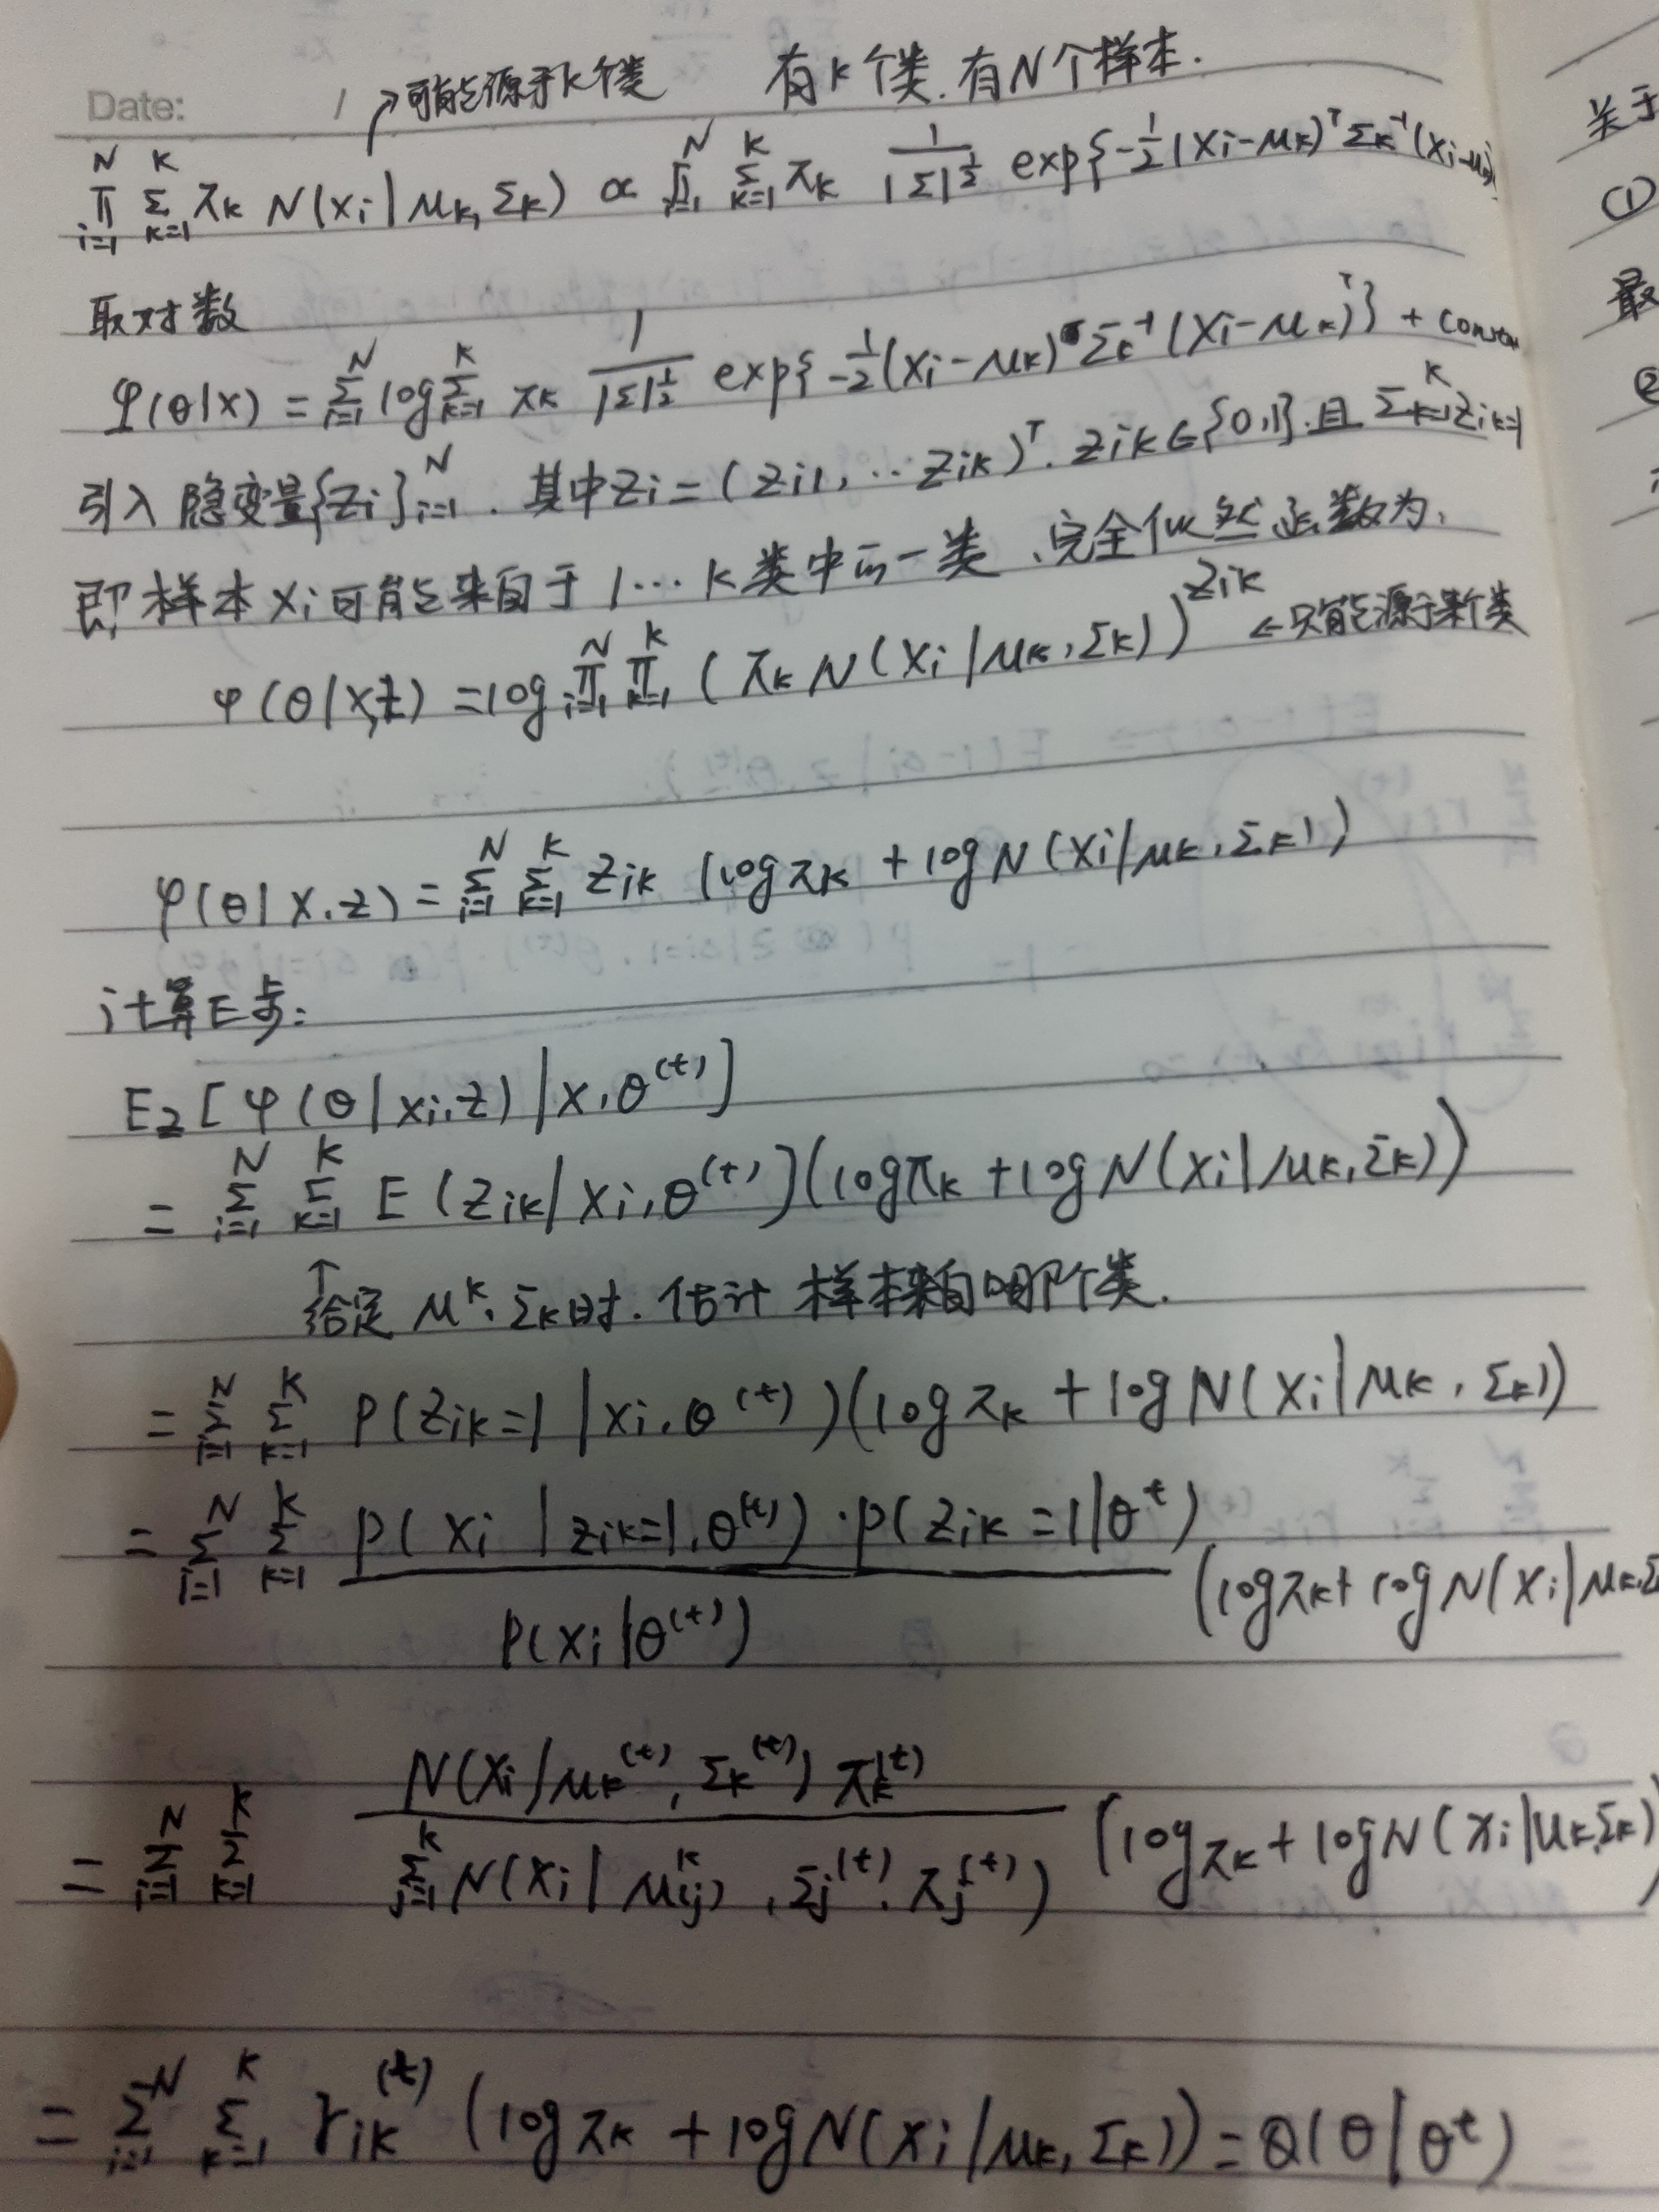 Date: /
↗可能源于K个类 有K个类.有N个样本.
∏_{i=1}^{N} Σ_{k=1}^{K} π_k N(x_i|μ_k,Σ_k) ∝ ∏_{i=1}^{N} Σ_{k=1}^{K} π_k 1/|Σ|^{1/2} exp{-1/2(x_i-μ_k)^T Σ_k^{-1}(x_i-μ_k)
取对数
φ(θ|x) = Σ_{i=1}^{N} log Σ_{k=1}^{K} π_k 1/|Σ|^{1/2} exp{-1/2(x_i-μ_k)^T Σ_k^{-1}(x_i-μ_k)} + constan
引入隐变量{z_i}_{i=1}^{N}.其中z_i=(z_{i1},..z_{ik})^T.z_{ik}∈{0,1}.且 Σ_{k=1}^{K} z_{ik}=1
即样本x_i可能来自于1...K类中的一类、完全似然函数为、
φ(θ|x,z) = log ∏_{i=1}^{N} ∏_{k=1}^{K} (π_k N(x_i|μ_k,Σ_k))^{z_{ik}} ←只能源于某个类
φ(θ|x.z) = Σ_{i=1}^{N} Σ_{k=1}^{K} z_{ik} (logπ_k + logN(x_i|μ_k.Σ_k))
计算E步:
E_z[φ(θ|x_i,z)|x,θ^{(t)}]
= Σ_{i=1}^{N} Σ_{k=1}^{K} E(z_{ik}|x_i,θ^{(t)}](logπ_k + logN(x_i|μ_k,Σ_k))
↑
给定μ^k、Σ_k时.估计样本来自哪个类.
= Σ_{i=1}^{N} Σ_{k=1}^{K} P(z_{ik}=1|x_i,θ^{(t)})(logπ_k + logN(x_i|μ_k,Σ_k))
= Σ_{i=1}^{N} Σ_{k=1}^{K} P(x_i|z_{ik}=1,θ^{(t)})·P(z_{ik}=1|θ^t) / P(x_i|θ^{(t)}) (logπ_k + logN(x_i|μ_k,Σ
= Σ_{i=1}^{N} Σ_{k=1}^{K} N(x_i|μ_k^{(t)},Σ_k^{(t)})π_k^{(t)} / Σ_{j=1}^{K} N(x_i|μ_{(j)}^{k},Σ_j^{(t)}.π_j^{(t)}) (logπ_k + logN(x_i|μ_k,Σ_k)
= Σ_{i=1}^{N} Σ_{k=1}^{K} γ_{ik}^{(t)} (logπ_k + logN(x_i|μ_k,Σ_k)) = Q(θ|θ^t)
关于
①
最
②